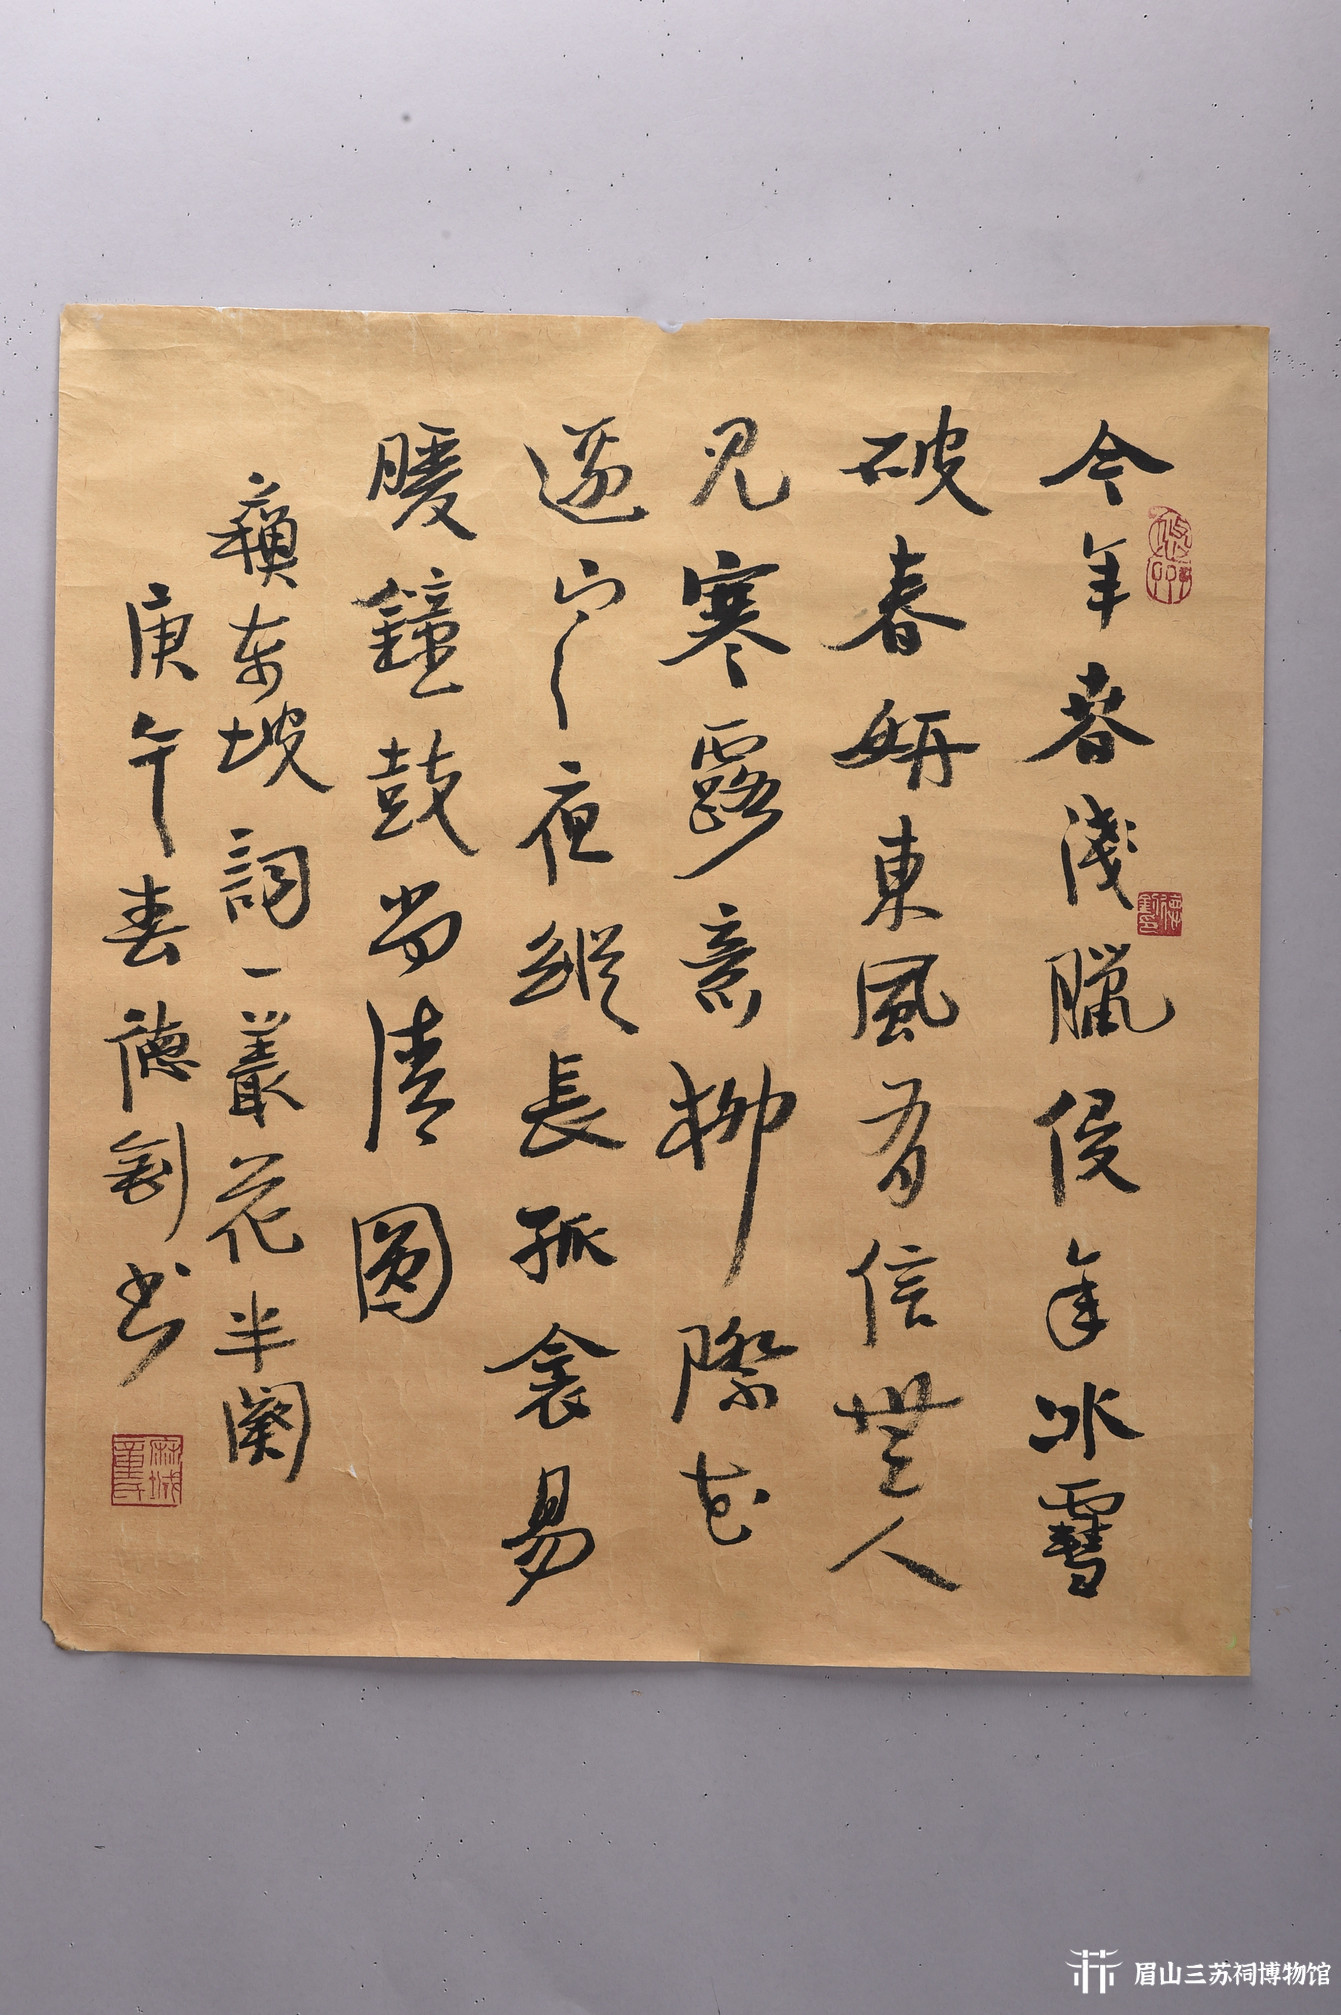 今年春淺臘侵年冰雪
破春妍東風有信無人
見寒露意柳際花
邊寒夜縱長孤衾易
暖鐘鼓尚清圓
蘓東坡詞一叢花半闋
庚午春德书
麻城童氏
眉山三苏祠博物馆